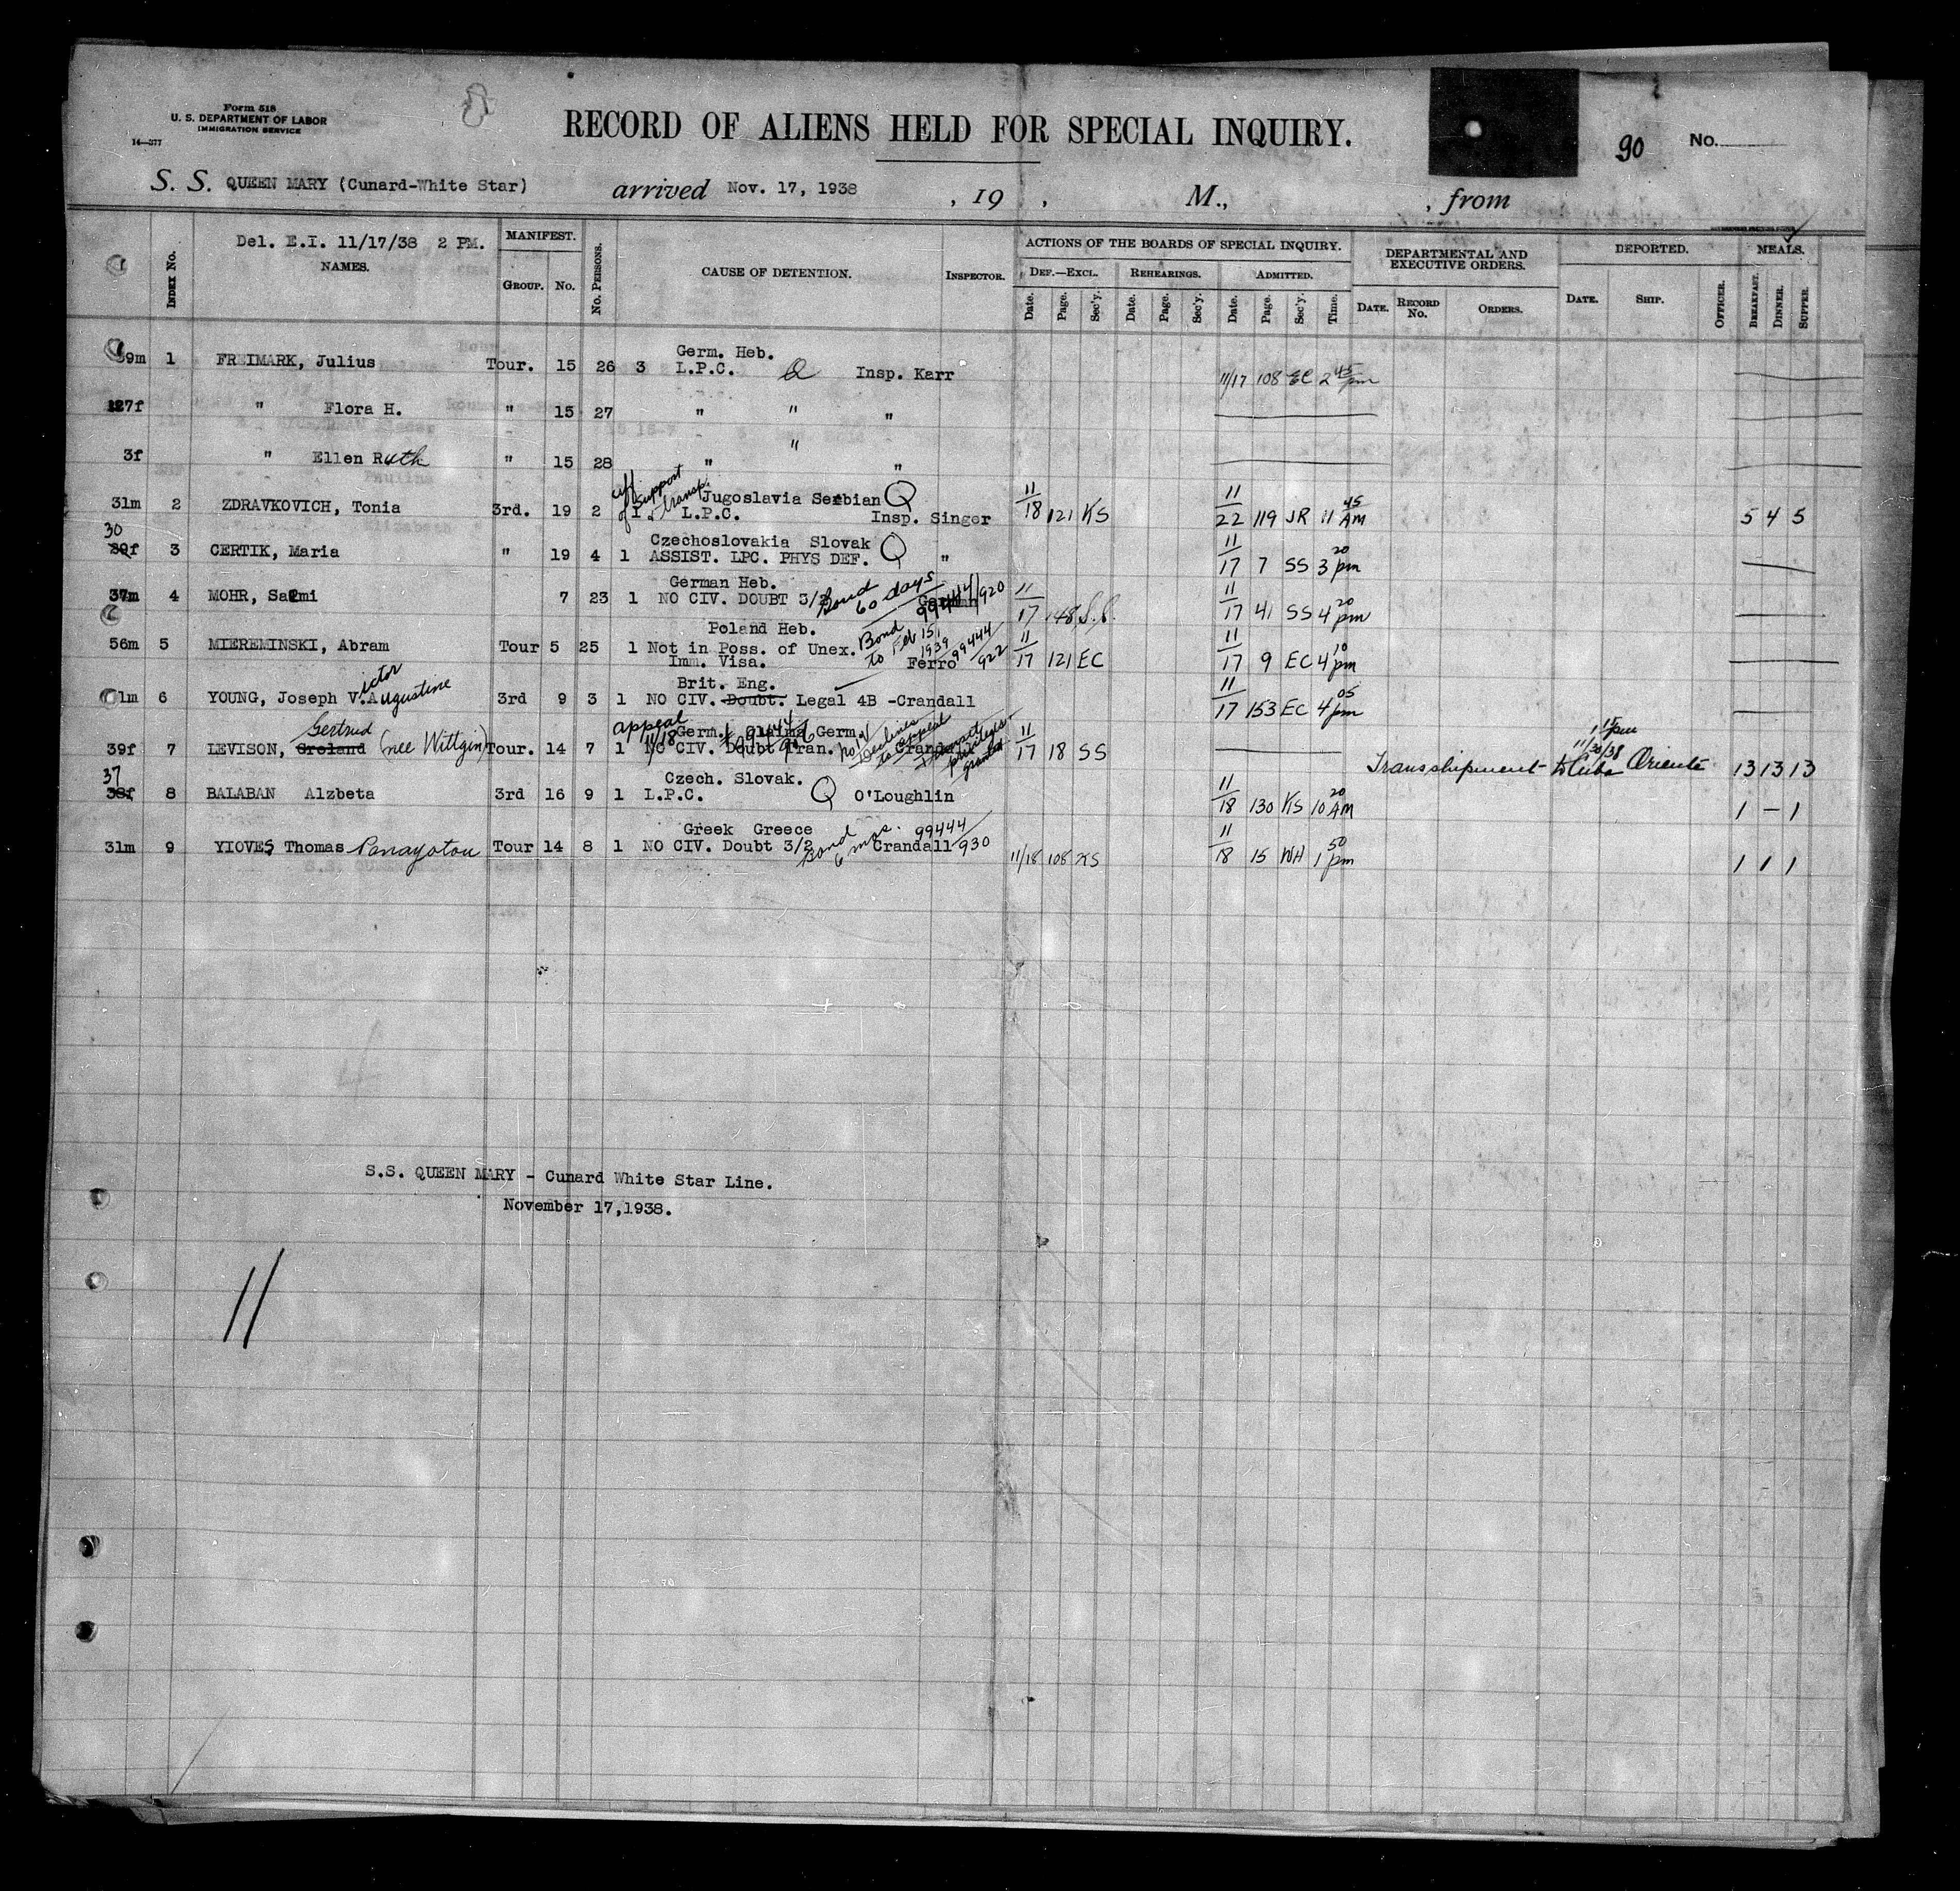 Form 518
U. S. DEPARTMENT OF LABOR
IMMIGRATION SERVICE
14—377
RECORD OF ALIENS HELD FOR SPECIAL INQUIRY.
90 No.
S. S. QUEEN MARY (Cunard-White Star) arrived Nov. 17, 1938 , 19 , M., , from
Del. E.I. 11/17/38 2 PM.
INDEX No. NAMES. MANIFEST. GROUP. No. No. PERSONS. CAUSE OF DETENTION. INSPECTOR. ACTIONS OF THE BOARDS OF SPECIAL INQUIRY. DEPARTMENTAL AND EXECUTIVE ORDERS. DEPORTED. MEALS.
DEF.—EXCL. REHEARINGS. ADMITTED.
Date. Page. Sec'y. Date. Page. Sec'y. Date. Page. Sec'y. Time. DATE. RECORD No. ORDERS. DATE. SHIP. OFFICER. BREAKFAST. DINNER. SUPPER.
Germ. Heb.
39m 1 FREIMARK, Julius Tour. 15 26 3 L.P.C. Q Insp. Karr 11/17 108 EC 2 45 pm
27f " Flora H. " 15 27 " " "
3f " Ellen Ruth " 15 28 " " "
aff of support & transp.
Jugoslavia Serbian Q
31m 2 ZDRAVKOVICH, Tonia 3rd. 19 2 1 L.P.C. Insp. Singer 11/18 121 KS 11/22 119 JR 11 45 AM 5 4 5
30 Czechoslovakia Slovak
29f 3 CERTIK, Maria " 19 4 1 ASSIST. LPC. PHYS DEF. Q " 11/17 7 SS 3 20 pm
German Heb. Bond 60 days 99444/920
37m 4 MOHR, Salmi 7 23 1 NO CIV. DOUBT 3/2 11/17 148 11/17 41 SS 4 20 pm
Poland Heb. Bond to Feb 15, 1939 99444/922
56m 5 MIEREMINSKI, Abram Tour 5 25 1 Not in Poss. of Unex. Imm. Visa. Ferro 11/17 121 EC 11/17 9 EC 4 10 pm
Brit. Eng.
1m 6 YOUNG, Joseph Victor Augustine 3rd 9 3 1 NO CIV. Doubt. Legal 4B -Crandall 11/17 153 EC 4 05 pm
appeal 11/18 Germ. Germ.
39f 7 LEVISON, Gertrud (nee Wittgin) Tour. 14 7 1 NO CIV. Doubt Tran. Crandall 11/17 18 SS Transhipment to Cuba 11/30/38 1 15 pm Oriente 13 13 13
37 Czech. Slovak.
38f 8 BALABAN Alzbeta 3rd 16 9 1 L.P.C. Q O'Loughlin 11/18 130 KS 10 20 AM 1 — 1
Greek Greece Bond 6 mos. 99444/930
31m 9 YIOVES Thomas Panayotou Tour 14 8 1 NO CIV. Doubt 3/2 Crandall 11/18 108 KS 11/18 15 WH 1 50 pm 1 1 1
S.S. QUEEN MARY - Cunard White Star Line.
November 17,1938.
11